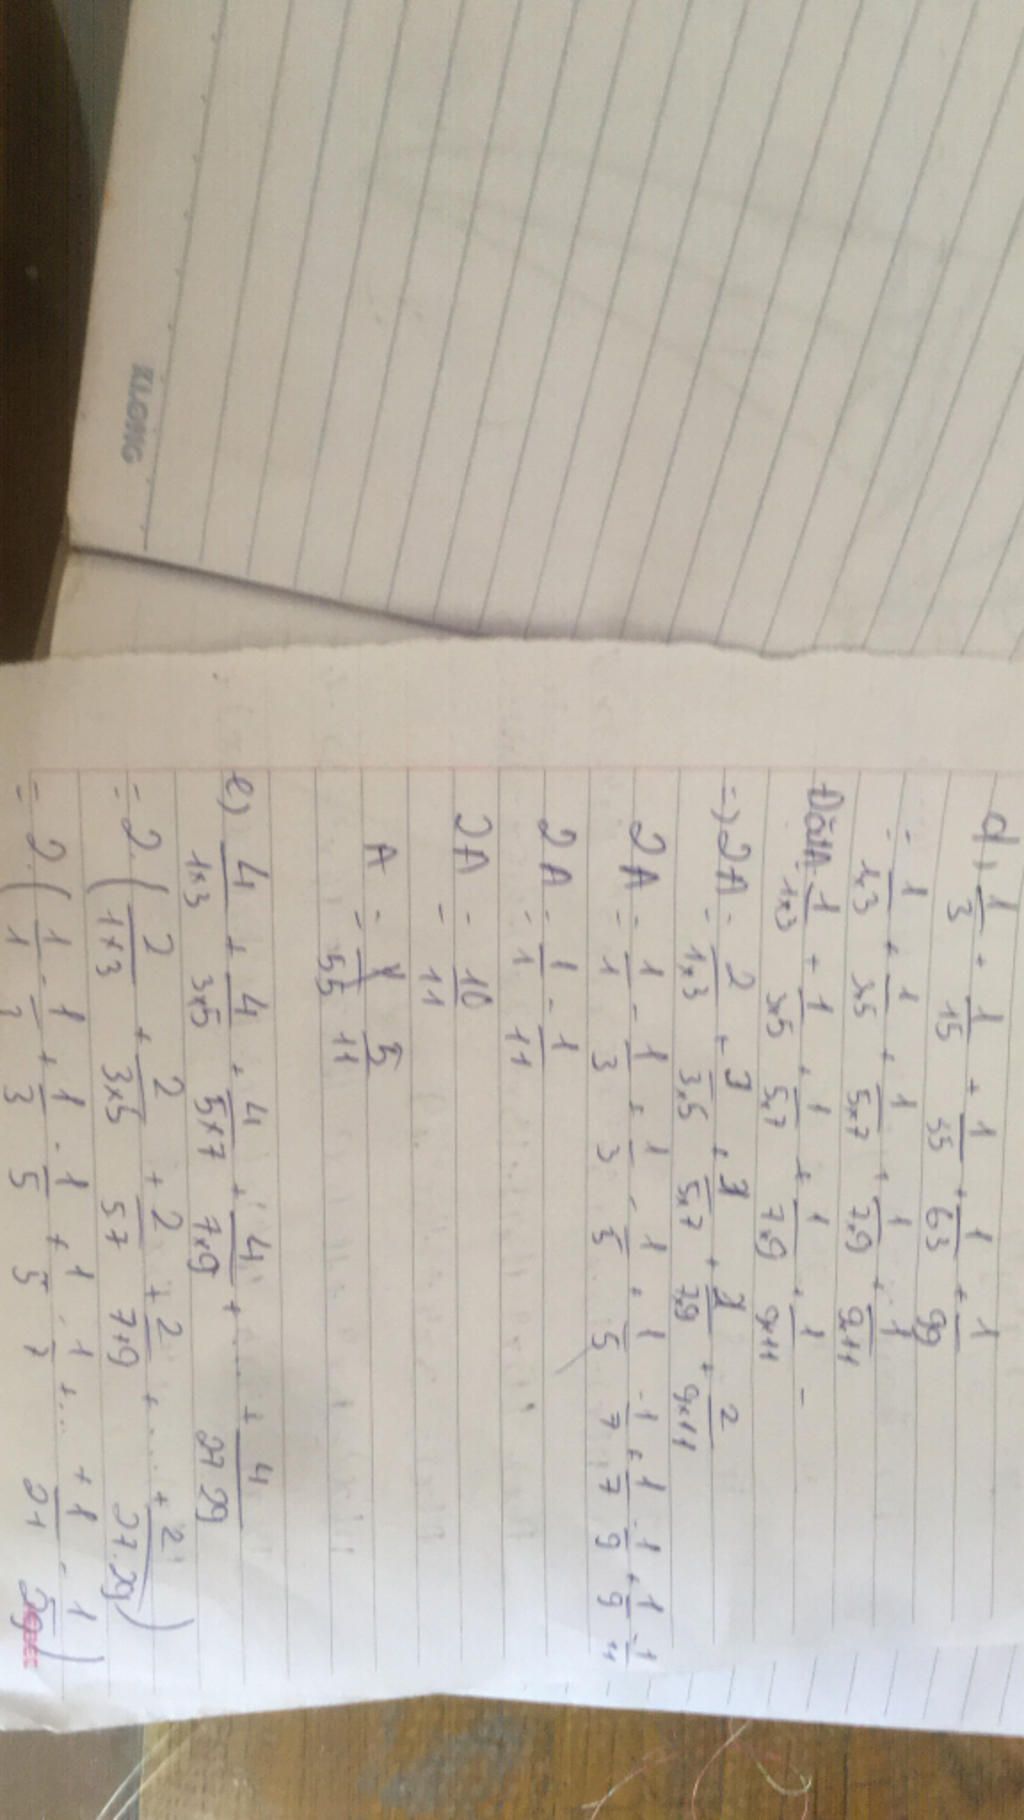 d) 1/3 + 1/15 + 1/35 + 1/63 + 1/99
= 1/1×3 + 1/3×5 + 1/5×7 + 1/7×9 + 1/9×11
Đặt A = 1/1×3 + 1/3×5 + 1/5×7 + 1/7×9 + 1/9×11
=) 2A = 2/1×3 + 2/3×5 + 2/5×7 + 2/7×9 + 2/9×11
2A = 1/1 - 1/3 + 1/3 - 1/5 + 1/5 - 1/7 + 1/7 - 1/9 + 1/9 - 1/11
2A = 1/1 - 1/11
2A = 10/11
A = 5/11
e) 4/1×3 + 4/3×5 + 4/5×7 + 4/7×9 + ... + 4/27.29
= 2.(2/1×3 + 2/3×5 + 2/5.7 + 2/7×9 + ... + 2/27.29)
= 2.(1/1 - 1/3 + 1/3 - 1/5 + 1/5 - 1/7 + ... + 1/27 - 1/29)
KLONG